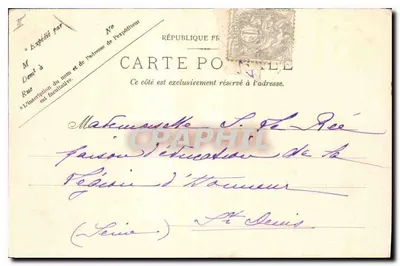 "Expédié par No
M
Demt à
Rue
"L'inscription du nom et de l'adresse de l'expéditeur
est facultative.
RÉPUBLIQUE FR
CARTE POSTALE
Ce côté est exclusivement réservé à l'adresse.
Mademoiselle S. Le Rée
Maison d'éducation de la
Légion d'Honneur
St Denis
(Seine)
CPAPHIL